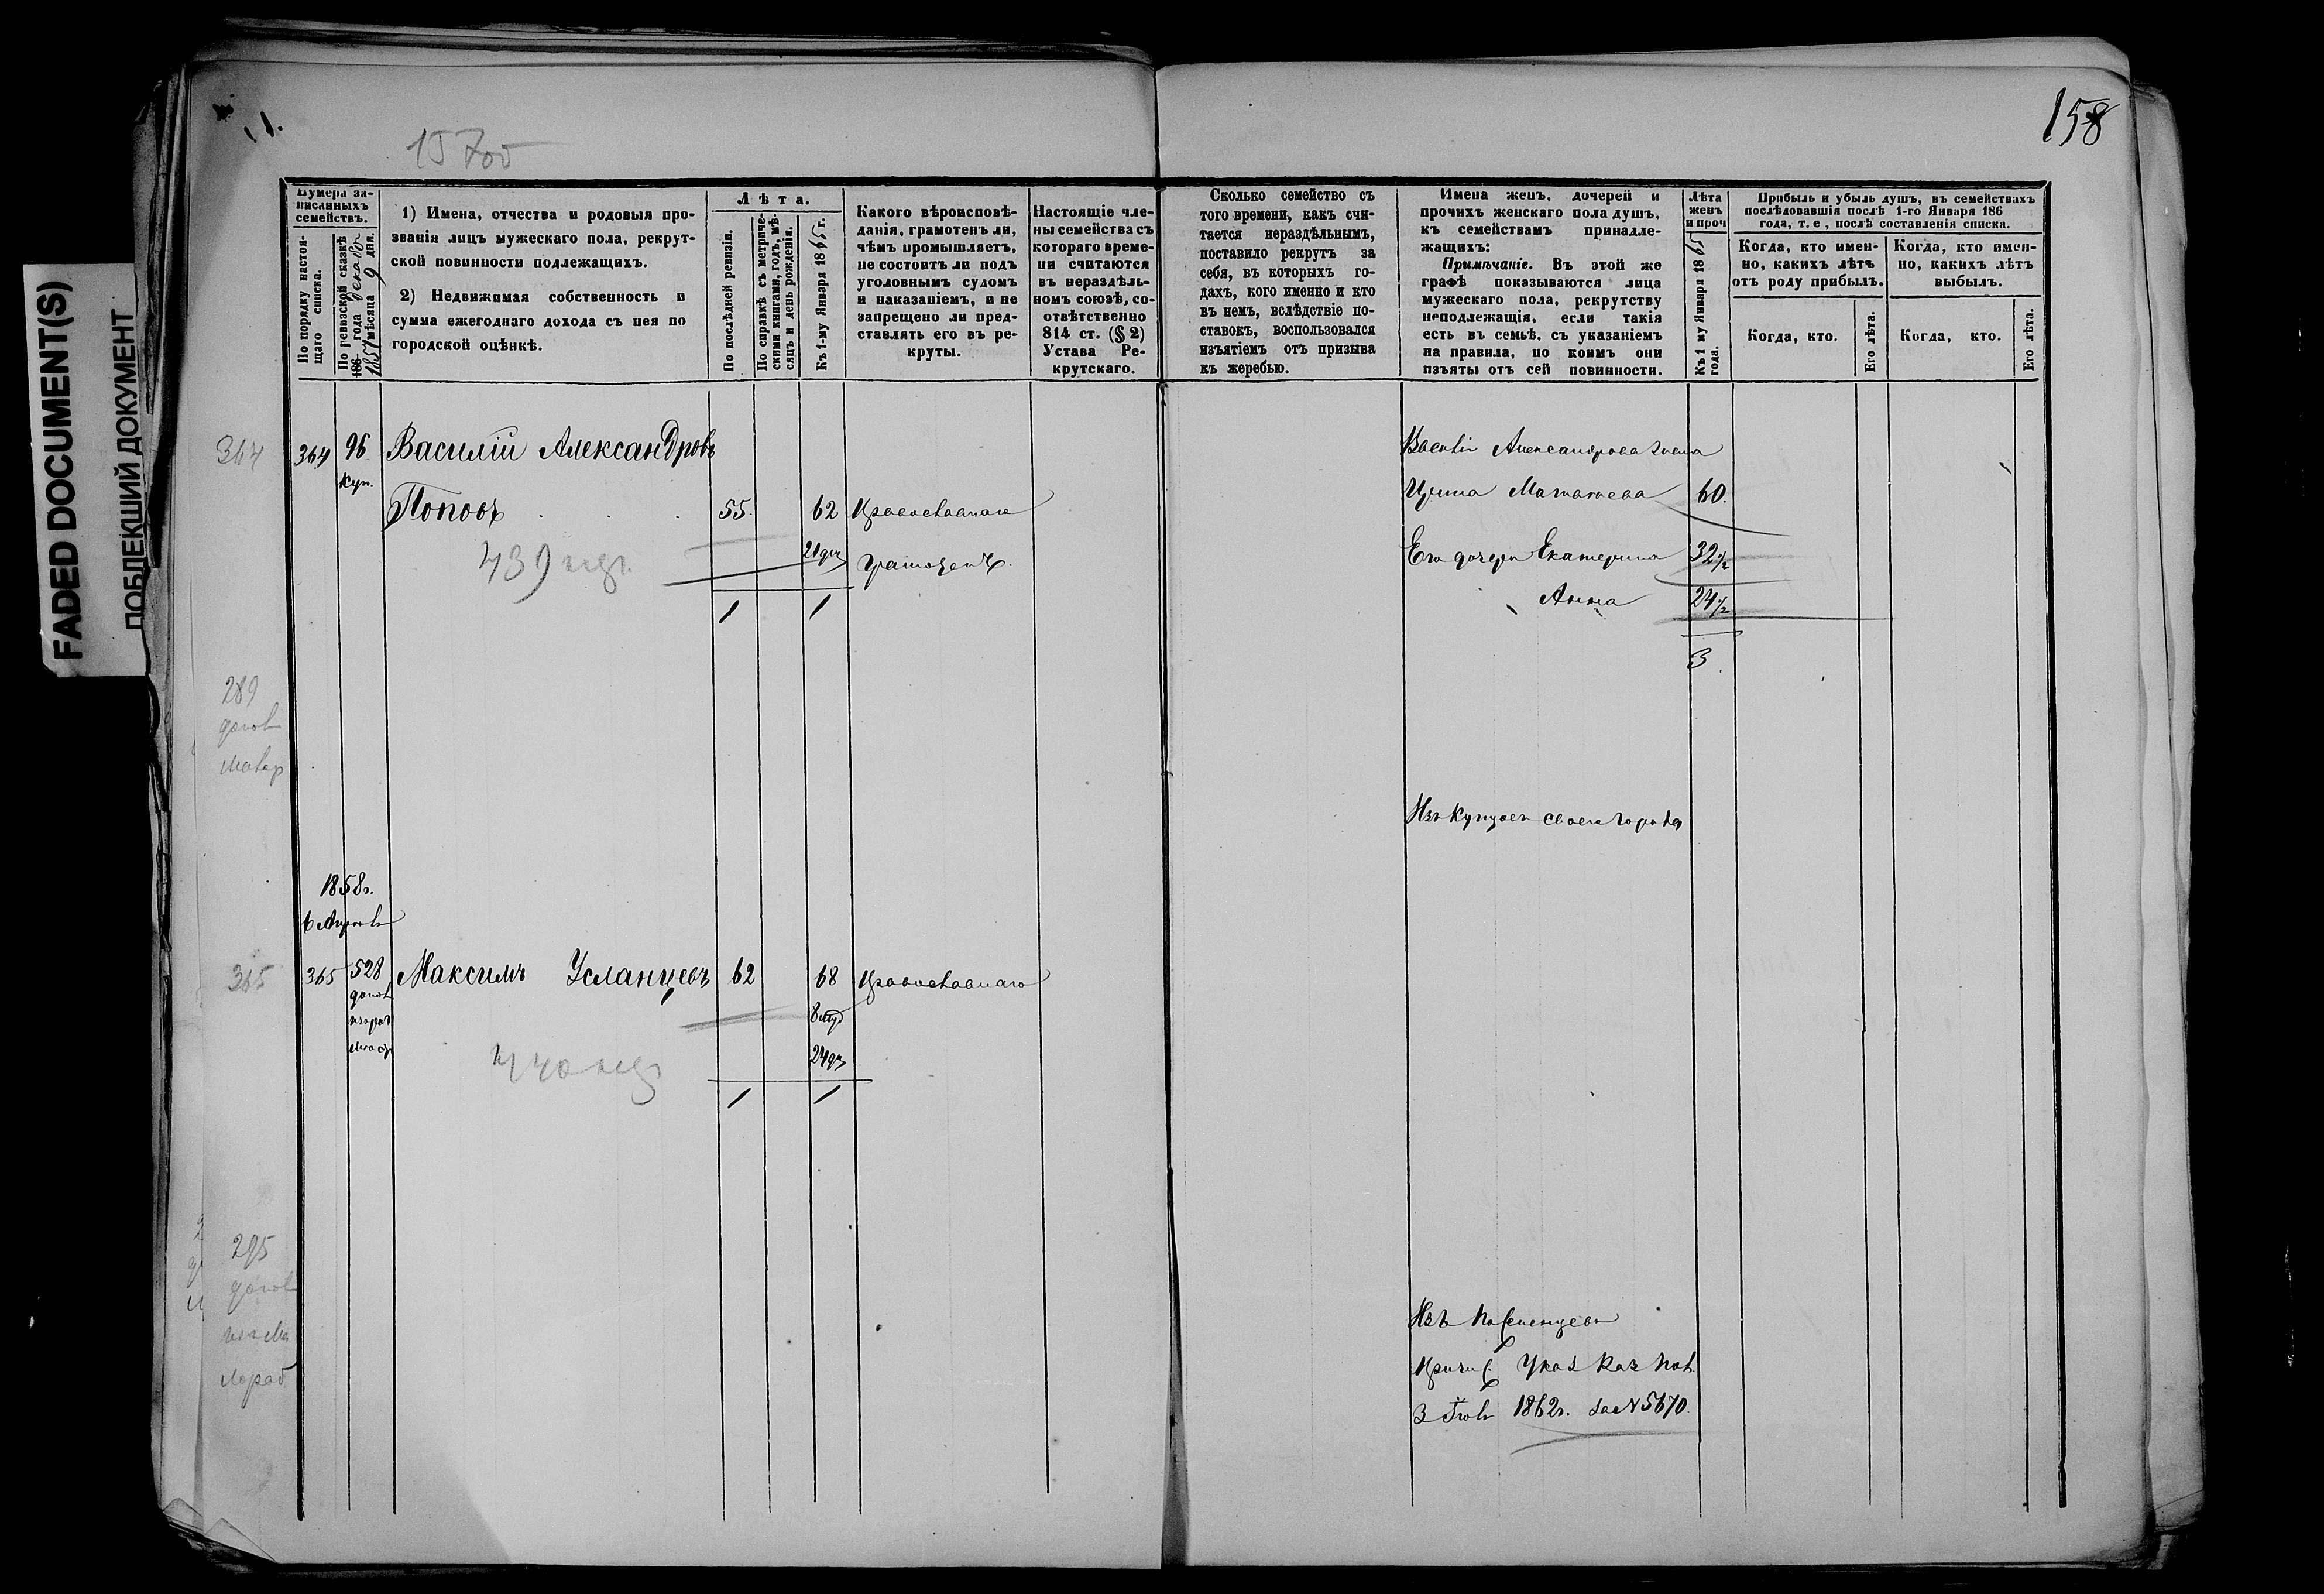 FADED DOCUMENT(S)
ПОБЛЕКШИЙ ДОКУМЕНТ
157об
158
Нумера за-
писанныхъ
семействъ.
По порядку настоя-
щаго списка.
По ревизской сказкѣ
186 года
1857 мѣсяца 9 дня.
1) Имена, отчества и родовыя про-
званія лицъ мужескаго пола, рекрут-
ской повинности подлежащихъ.
2) Недвижимая собственность и
сумма ежегоднаго дохода съ нея по
городской оцѣнкѣ.
Лѣта.
По послѣдней ревизіи.
По справкѣ съ метриче-
скими книгами, годъ, мѣ-
сяцъ и день рожденія.
Къ 1-му Января 1865 г.
Какого вѣроисповѣ-
данія, грамотенъ ли,
чѣмъ промышляетъ,
не состоитъ ли подъ
уголовнымъ судомъ
и наказаніемъ, и не
запрещено ли пред-
ставлять его въ ре-
круты.
Настоящіе чле-
ны семейства съ
котораго време-
ни считаются
въ нераздѣль-
номъ союзѣ, со-
отвѣтственно
814 ст. (§ 2)
Устава Ре-
крутскаго.
Сколько семейство съ
того времени, какъ счи-
тается нераздѣльнымъ,
поставило рекрутъ за
себя, въ которыхъ го-
дахъ, кого именно и кто
въ немъ, вслѣдствіе по-
ставокъ, воспользовался
изъятіемъ отъ призыва
къ жеребью.
Имена женъ, дочерей и
прочихъ женскаго пола душъ,
къ семействамъ принадле-
жащихъ:
Примѣчаніе. Въ этой же
графѣ показываются лица
мужескаго пола, рекрутству
неподлежащія, если такія
есть въ семьѣ, съ указаніемъ
на правила, по коимъ они
изъяты отъ сей повинности.
Лѣта
женъ
и проч
Къ 1 му Января 1865
года.
Прибыль и убыль душъ, въ семействахъ
послѣдовавшія послѣ 1-го Января 186
года, т. е., послѣ составленія списка.
Когда, кто имен-
но, какихъ лѣтъ
отъ роду прибылъ.
Когда, кто имен-
но, какихъ лѣтъ
выбылъ.
Когда, кто.
Его лѣта.
Когда, кто.
Его лѣта.
364 364 96 Василій Александровъ
Куп.
Поповъ 55. 62 Православнаго
439
грамотенъ.
1 1
Александрова жена
60.
Его дочери Екатерина 32 1/2
Анна 24 1/2
3.
289
Изъ Купцовъ своего города
1858г.
365 365 528 Максимъ Усланцевъ 62 68 Православнаго
440
1 1
295
Изъ поселенцевъ
Указ Каз Пал
3 1862г. за №5670.